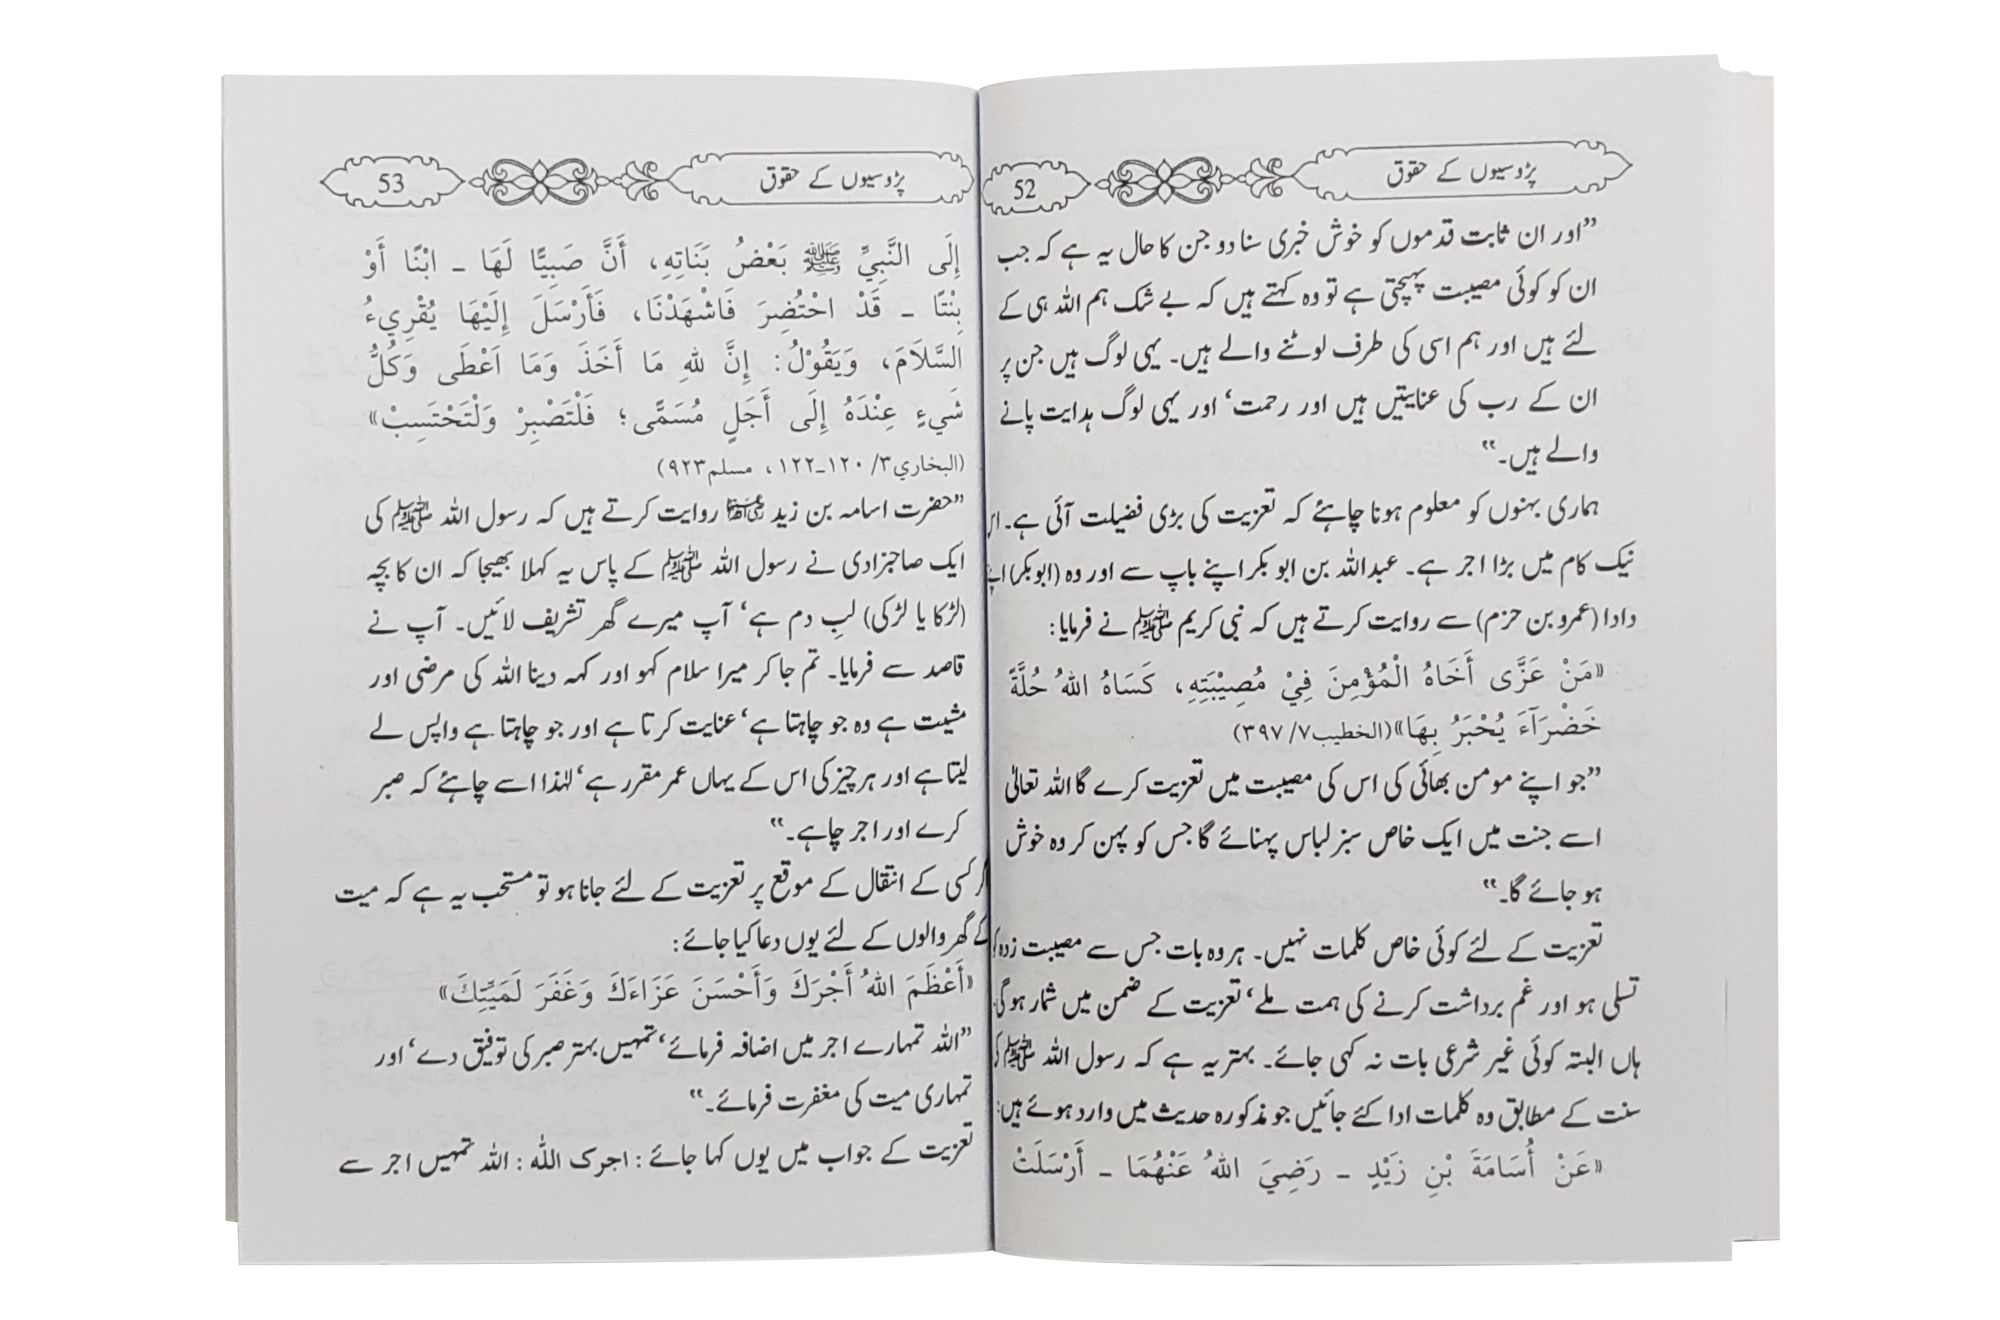 پڑوسیوں کے حقوق
52
”اور ان ثابت قدموں کو خوش خبری سنا دو جن کا حال یہ ہے کہ جب
ان کو کوئی مصیبت پہنچتی ہے تو وہ کہتے ہیں کہ بے شک ہم اللہ ہی کے
لئے ہیں اور ہم اسی کی طرف لوٹنے والے ہیں۔ یہی لوگ ہیں جن پر
ان کے رب کی عنایتیں ہیں اور رحمت‘ اور یہی لوگ ہدایت پانے
والے ہیں۔“
ہماری بہنوں کو معلوم ہونا چاہئے کہ تعزیت کی بڑی فضیلت آئی ہے۔ اس
نیک کام میں بڑا اجر ہے۔ عبداللہ بن ابو بکر اپنے باپ سے اور وہ (ابو بکر) اپنے
دادا (عمرو بن حزم) سے روایت کرتے ہیں کہ نبی کریم ﷺ نے فرمایا:
«مَنْ عَزَّى أَخَاهُ الْمُؤْمِنَ فِيْ مُصِيْبَتِهِ، كَسَاهُ اللهُ حُلَّةً
خَضْرَآءَ يُحْبَرُ بِهَا»(الخطيب٧/ ٣٩٧)
”جو اپنے مومن بھائی کی اس کی مصیبت میں تعزیت کرے گا اللہ تعالیٰ
اسے جنت میں ایک خاص سبز لباس پہنائے گا جس کو پہن کر وہ خوش
ہو جائے گا۔“
تعزیت کے لئے کوئی خاص کلمات نہیں۔ ہر وہ بات جس سے مصیبت زدہ کو
تسلی ہو اور غم برداشت کرنے کی ہمت ملے‘ تعزیت کے ضمن میں شمار ہو گی۔
ہاں البتہ کوئی غیر شرعی بات نہ کہی جائے۔ بہتر یہ ہے کہ رسول اللہ ﷺ کی
سنت کے مطابق وہ کلمات ادا کئے جائیں جو مذکورہ حدیث میں وارد ہوئے ہیں:
«عَنْ أُسَامَةَ بْنِ زَيْدٍ ـ رَضِيَ اللهُ عَنْهُمَا ـ أَرْسَلَتْ
پڑوسیوں کے حقوق
53
إِلَى النَّبِيِّ ﷺ بَعْضُ بَنَاتِهِ، أَنَّ صَبِيًّا لَهَا ـ ابْنًا أَوْ
بِنْتًا ـ قَدْ احْتُضِرَ فَاشْهَدْنَا، فَأَرْسَلَ إِلَيْهَا يُقْرِيءُ
السَّلَامَ، وَيَقُوْلُ: إِنَّ للهِ مَا أَخَذَ وَمَا اَعْطَى وَكُلُّ
شَيءٍ عِنْدَهُ إِلَى أَجَلٍ مُسَمًّى؛ فَلْتَصْبِرْ وَلْتَحْتَسِبْ»
(البخاري٣/ ١٢٠ـ١٢٢، مسلم٩٢٣)
”حضرت اسامہ بن زید رضی اللہ عنہما روایت کرتے ہیں کہ رسول اللہ ﷺ کی
ایک صاحبزادی نے رسول اللہ ﷺ کے پاس یہ کہلا بھیجا کہ ان کا بچہ
(لڑکا یا لڑکی) لبِ دم ہے‘ آپ میرے گھر تشریف لائیں۔ آپ نے
قاصد سے فرمایا۔ تم جا کر میرا سلام کہو اور کہہ دینا اللہ کی مرضی اور
مشیت ہے وہ جو چاہتا ہے‘ عنایت کرتا ہے اور جو چاہتا ہے واپس لے
لیتا ہے اور ہر چیز کی اس کے یہاں عمر مقرر ہے‘ لہٰذا اسے چاہئے کہ صبر
کرے اور اجر چاہے۔“
گر کسی کے انتقال کے موقع پر تعزیت کے لئے جانا ہو تو مستحب یہ ہے کہ میت
کے گھر والوں کے لئے یوں دعا کیا جائے:
«أَعْظَمَ اللهُ أَجْرَكَ وَأَحْسَنَ عَزَاءَكَ وَغَفَرَ لَمَيِّتِكَ»
”اللہ تمہارے اجر میں اضافہ فرمائے‘ تمہیں بہتر صبر کی توفیق دے‘ اور
تمہاری میت کی مغفرت فرمائے۔“
تعزیت کے جواب میں یوں کہا جائے: اجرک اللّٰہ: اللہ تمہیں اجر سے